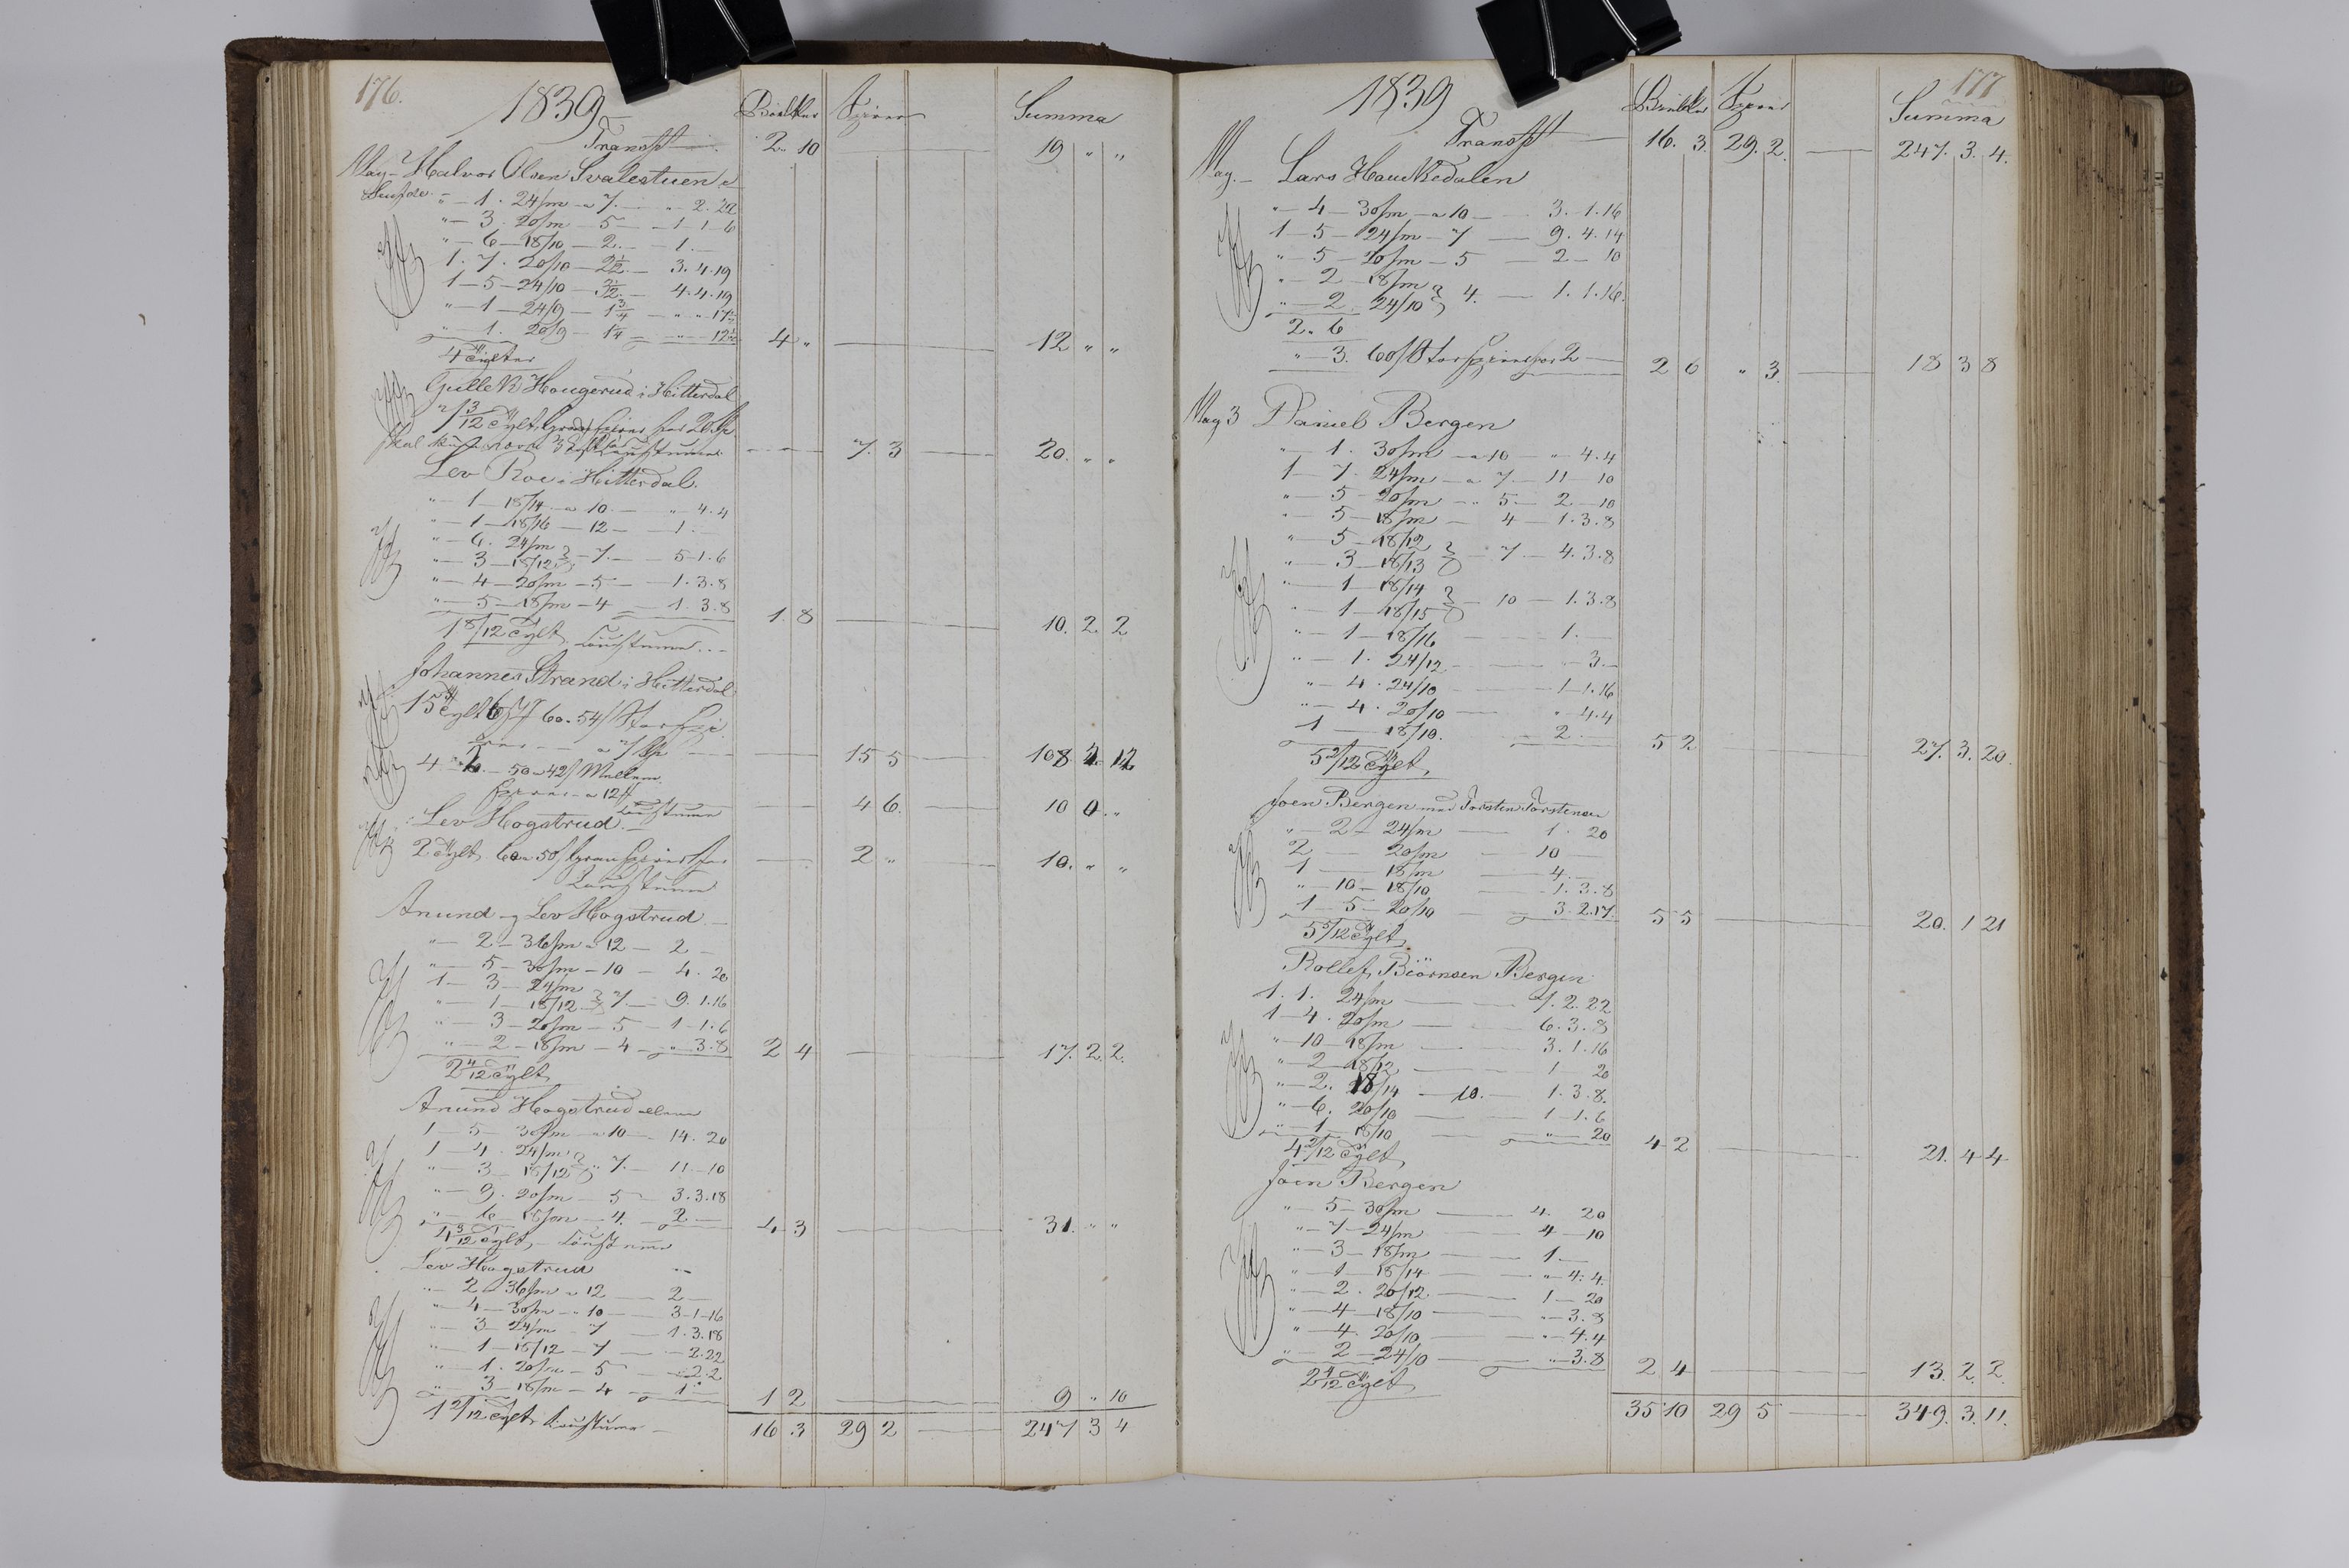 176.
1839
Bielker Spirer Summa
Transpt 2. 10 19 " "
May - Halvor Olsen Svalestuen
" - 1 . 24/m - a 7. - " 2. 22
" - 3 . 20/m - 5 - - 1 - 1 - 6
" - 6 - 18/10 - 2. - 1. -
1. 7. 20/10 - 2 1/2 - 3. 4. 19
1 - 5 - 24/10 - 3/2 - 4. 4. 19
" - 1 - 24/9 - 1 3/4 - " " 17
" - 1. 20/9 - 1/4 - " - 12 1/2 4 " 12 " "
4 Tylter
Gullek Haugerud i Hitterdal
7 3/12 Tylt 7. 3 20. " "
Lev Roe i Hitterdal.
" - 1 18/14 - a 10. - " 4. 4
" - 1 - 18/16 - 12 - 1. -
" - 6. 24/m
" - 3 - 18/12 } - 7. - 5 - 1. 6
" - 4 - 20/m - 5 - - 1. 3. 8
" - 5 - 18/m - 4 - 1. 3. 8 1. 8 10. 2 2
1 8/12 Tylt
Johannes Strand i Hitterdal
15 Tylt 60. 54/
15 5 108 4. 12
4 - 50 - 42/ Mellem
a 12 4 6. 10 0. "
Lev Hogstrud. -
2 Tylt 60 a 50/ 2 " 10. " "
Anund og Lev Hogstrud -
" - 2 - 36/m a 12 - 2 -
" - 5 - 30/m - 10 - 4. 20
1 - 3 - 24/m
" - 1 - 18/12 } 7. - 9. 1. 16
" - 3 - 20/m - 5 - 1 - 1. 6
" - 2 - 18/m - 4 - " 3. 8 2 4 17. 2. 2.
2 4/12 Tylt
Anund Hogstrud allene
1 - 5 - 30/m - a 10 - 14. 20
1 - 4. 24/m
" - 3 - 18/12 } " 7. - 11 - 10
" - 9. 20/m - 5 - 3. 3. 18
" - 6 - 18/m - 4. - 2 - 4 3 31. " "
4 3/12 Tylt
Lev Hogstrud
" - 2 - 36/m a 12 - 2 -
" - 4 - 30/m - " 10 - 3 - 1 - 16
" - 3 - 24/m - 7 - 1. 3. 18
" - 1 - 18/12 - 7 - 2. 22
" - 1. 20/m - 5 - 2. 2
" - 3 - 18/m - 4 - 1 - 1 2 9 " 10
1 2/12 Tylt
16 3 29 2 247 3 4
177
1839
Bielker Spirer Summa
Transpt 16. 3. 29. 2. 247. 3. 4.
May. - Lars Haukedalen
" - 4 - 30/m - a 10 - 3. 1. 16
1 - 5 - 24/m - 7 - 9. 4. 14
" - 5 - 20/m - 5 - 2 - 10
" - 2 - 18/m
" - 2. 24/10 } 4. - 1. 1. 16.
2. 6
" - 3. 60/ 2 - 2 6 " 3. 18 3 8
May 3 Daniel Bergen
" - 1. 30/m - a 10 - " 4. 4
1 - 7. 24/m - a 7 - 11 - 10
" - 5 - 20/m - " 5 - 2 - 10
" - 5 - 18/m - 4 - 1. 3. 8
" - 5 - 18/12
" - 3 - 18/13 } - 7 - 4. 3. 8
" - 1 - 18/14
" - 1 - 18/15 } - 10 - 1. 3. 8
" - 1 - 18/16 - 1. -
" - 1. 24/12 - " - 3. -
" - 4. 24/10 - 1 - 1. 16
" - 4. 20/10 - " 4. 4
1 - 18/10. - 2. - 5 2 27. 3. 20.
5 2/12 Tylt
Joen Bergen med Torsten Torstensen
" - 2 - 24/m - 1. 20
2 - 20/m - 10 -
1 - 18/m - 4. -
" - 10 - 18/10 - 1. 3. 8
1 - 5 - 20/10 - 3. 2. 17. 5 5 20. 1 21
5 5/12 Tylt
Rollef Biörnsen Bergen
1. 1. 24/m - 7. 2. 22
1 - 4. 20/m - 6. 3. 8
" - 10 - 18/m - 3. 1. 16
" - 2 - 18/12 - 1 - 20
" - 2. 18/14 - 10. - 1. 3. 8.
" - 6. 20/10 - 1 - 1. 6
" - 1 - 18/10 - " - 20 4 2 21. 4 4
4 2/12 Tylt
Joen Bergen
" - 5 - 30/m - 4. 20
" - 7 - 24/m - 4 - 10
" - 3 - 18/m - 1 -
" - 1 - 18/14 - " 4. 4.
" - 2. 20/12. - 1 - 20
" - 4 - 18/10 - " - 3. 8
" - 4. 20/10 - " - 4. 4
" - 2 - 24/10 - " - 3. 8 2 4 13. 2. 2.
2 4/12 Tylt
35 10 29 5 349. 3. 11.